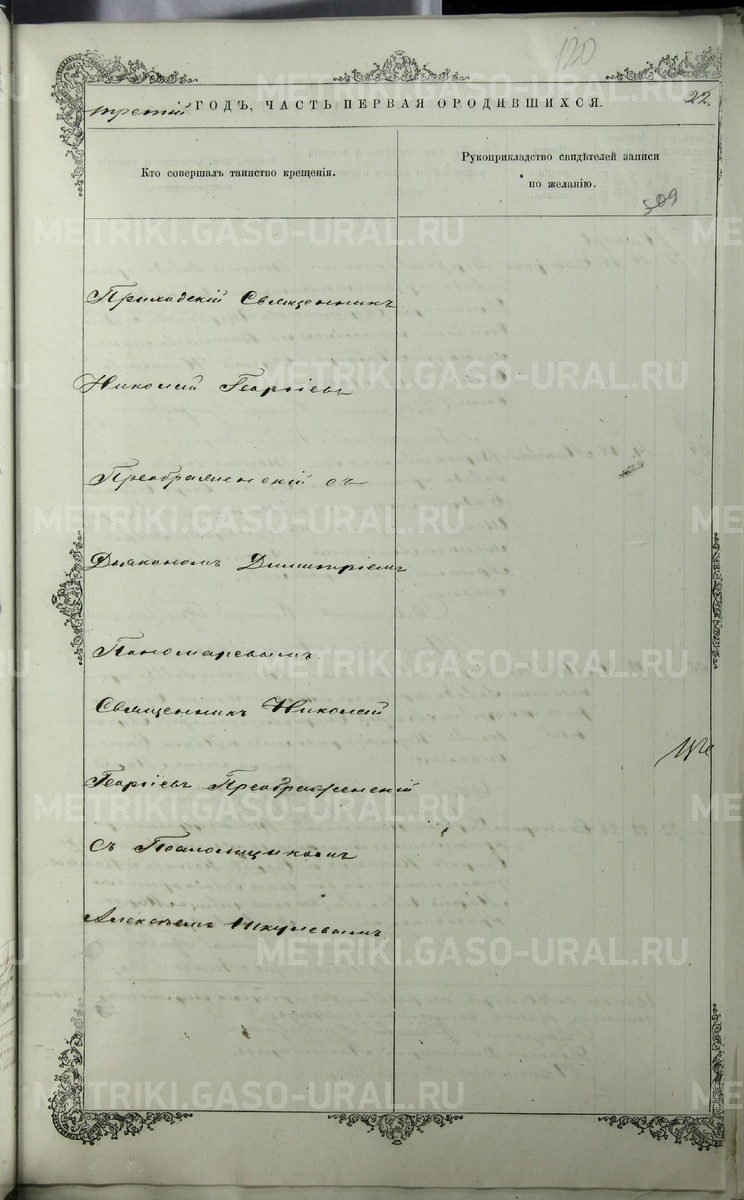 120
METRIKI.GASO-URAL.RU
третій ГОДЪ, ЧАСТЬ ПЕРВАЯ О РОДИВШИХСЯ. 22.
Кто совершалъ таинство крещенія.
Рукоприкладство свидѣтелей записи
по желанію.
509
Приходскій Священникъ
Николай Георгіевъ
Преображенскій съ
Дьякономъ Димитріемъ
Пономаревымъ.
Священникъ Николай
Георгіевъ Преображенскій
съ Псаломщикомъ
Алексѣемъ Никулевымъ